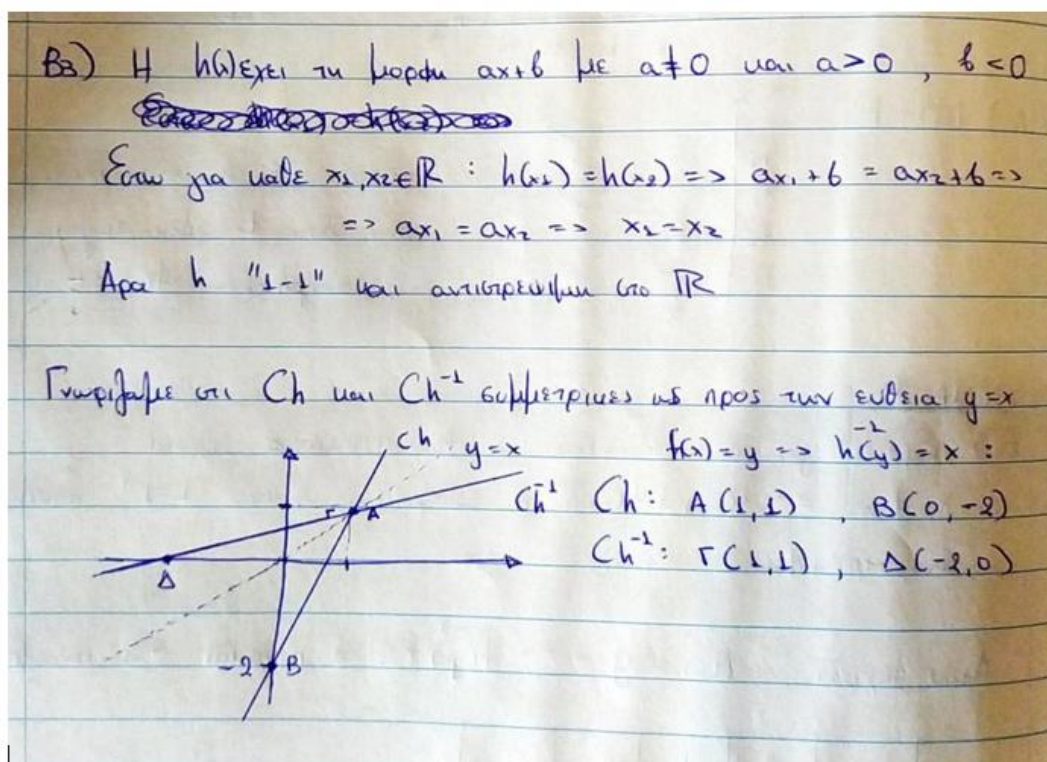 Β3) Η h(x) εχει τη μορφη αx+β με α≠0 και α>0, β<0
Εστω για καθε x1, x2 ∈ ℝ : h(x1) = h(x2) => αx1 + β = αx2 + β =>
=> αx1 = αx2 => x1 = x2
Αρα h "1-1" και αντιστρεψιμη στο ℝ
Γνωριζαμε οτι Ch και Ch⁻¹ συμμετρικες ως προς την ευθεια y=x
Ch y=x f(x) = y => h⁻¹(y) = x :
Ch⁻¹ Ch: A(1,1) , B(0,-2)
Γ A
Ch⁻¹: Γ(1,1) , Δ(-2,0)
Δ
-2 B